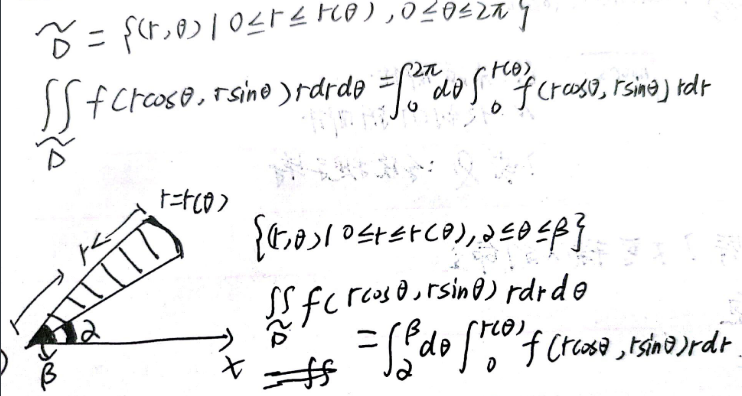 D̃ = {(r,θ) | 0≤r≤r(θ), 0≤θ≤2π}
∬_D̃ f(rcosθ, rsinθ) rdrdθ = ∫_0^{2π} dθ ∫_0^{r(θ)} f(rcosθ, rsinθ) rdr
r=r(θ)
r
{(r,θ) | 0≤r≤r(θ), α≤θ≤β}
∬_D̃ f(rcosθ, rsinθ) rdrdθ
α
= ∫_α^β dθ ∫_0^{r(θ)} f(rcosθ, rsinθ) rdr
β
x